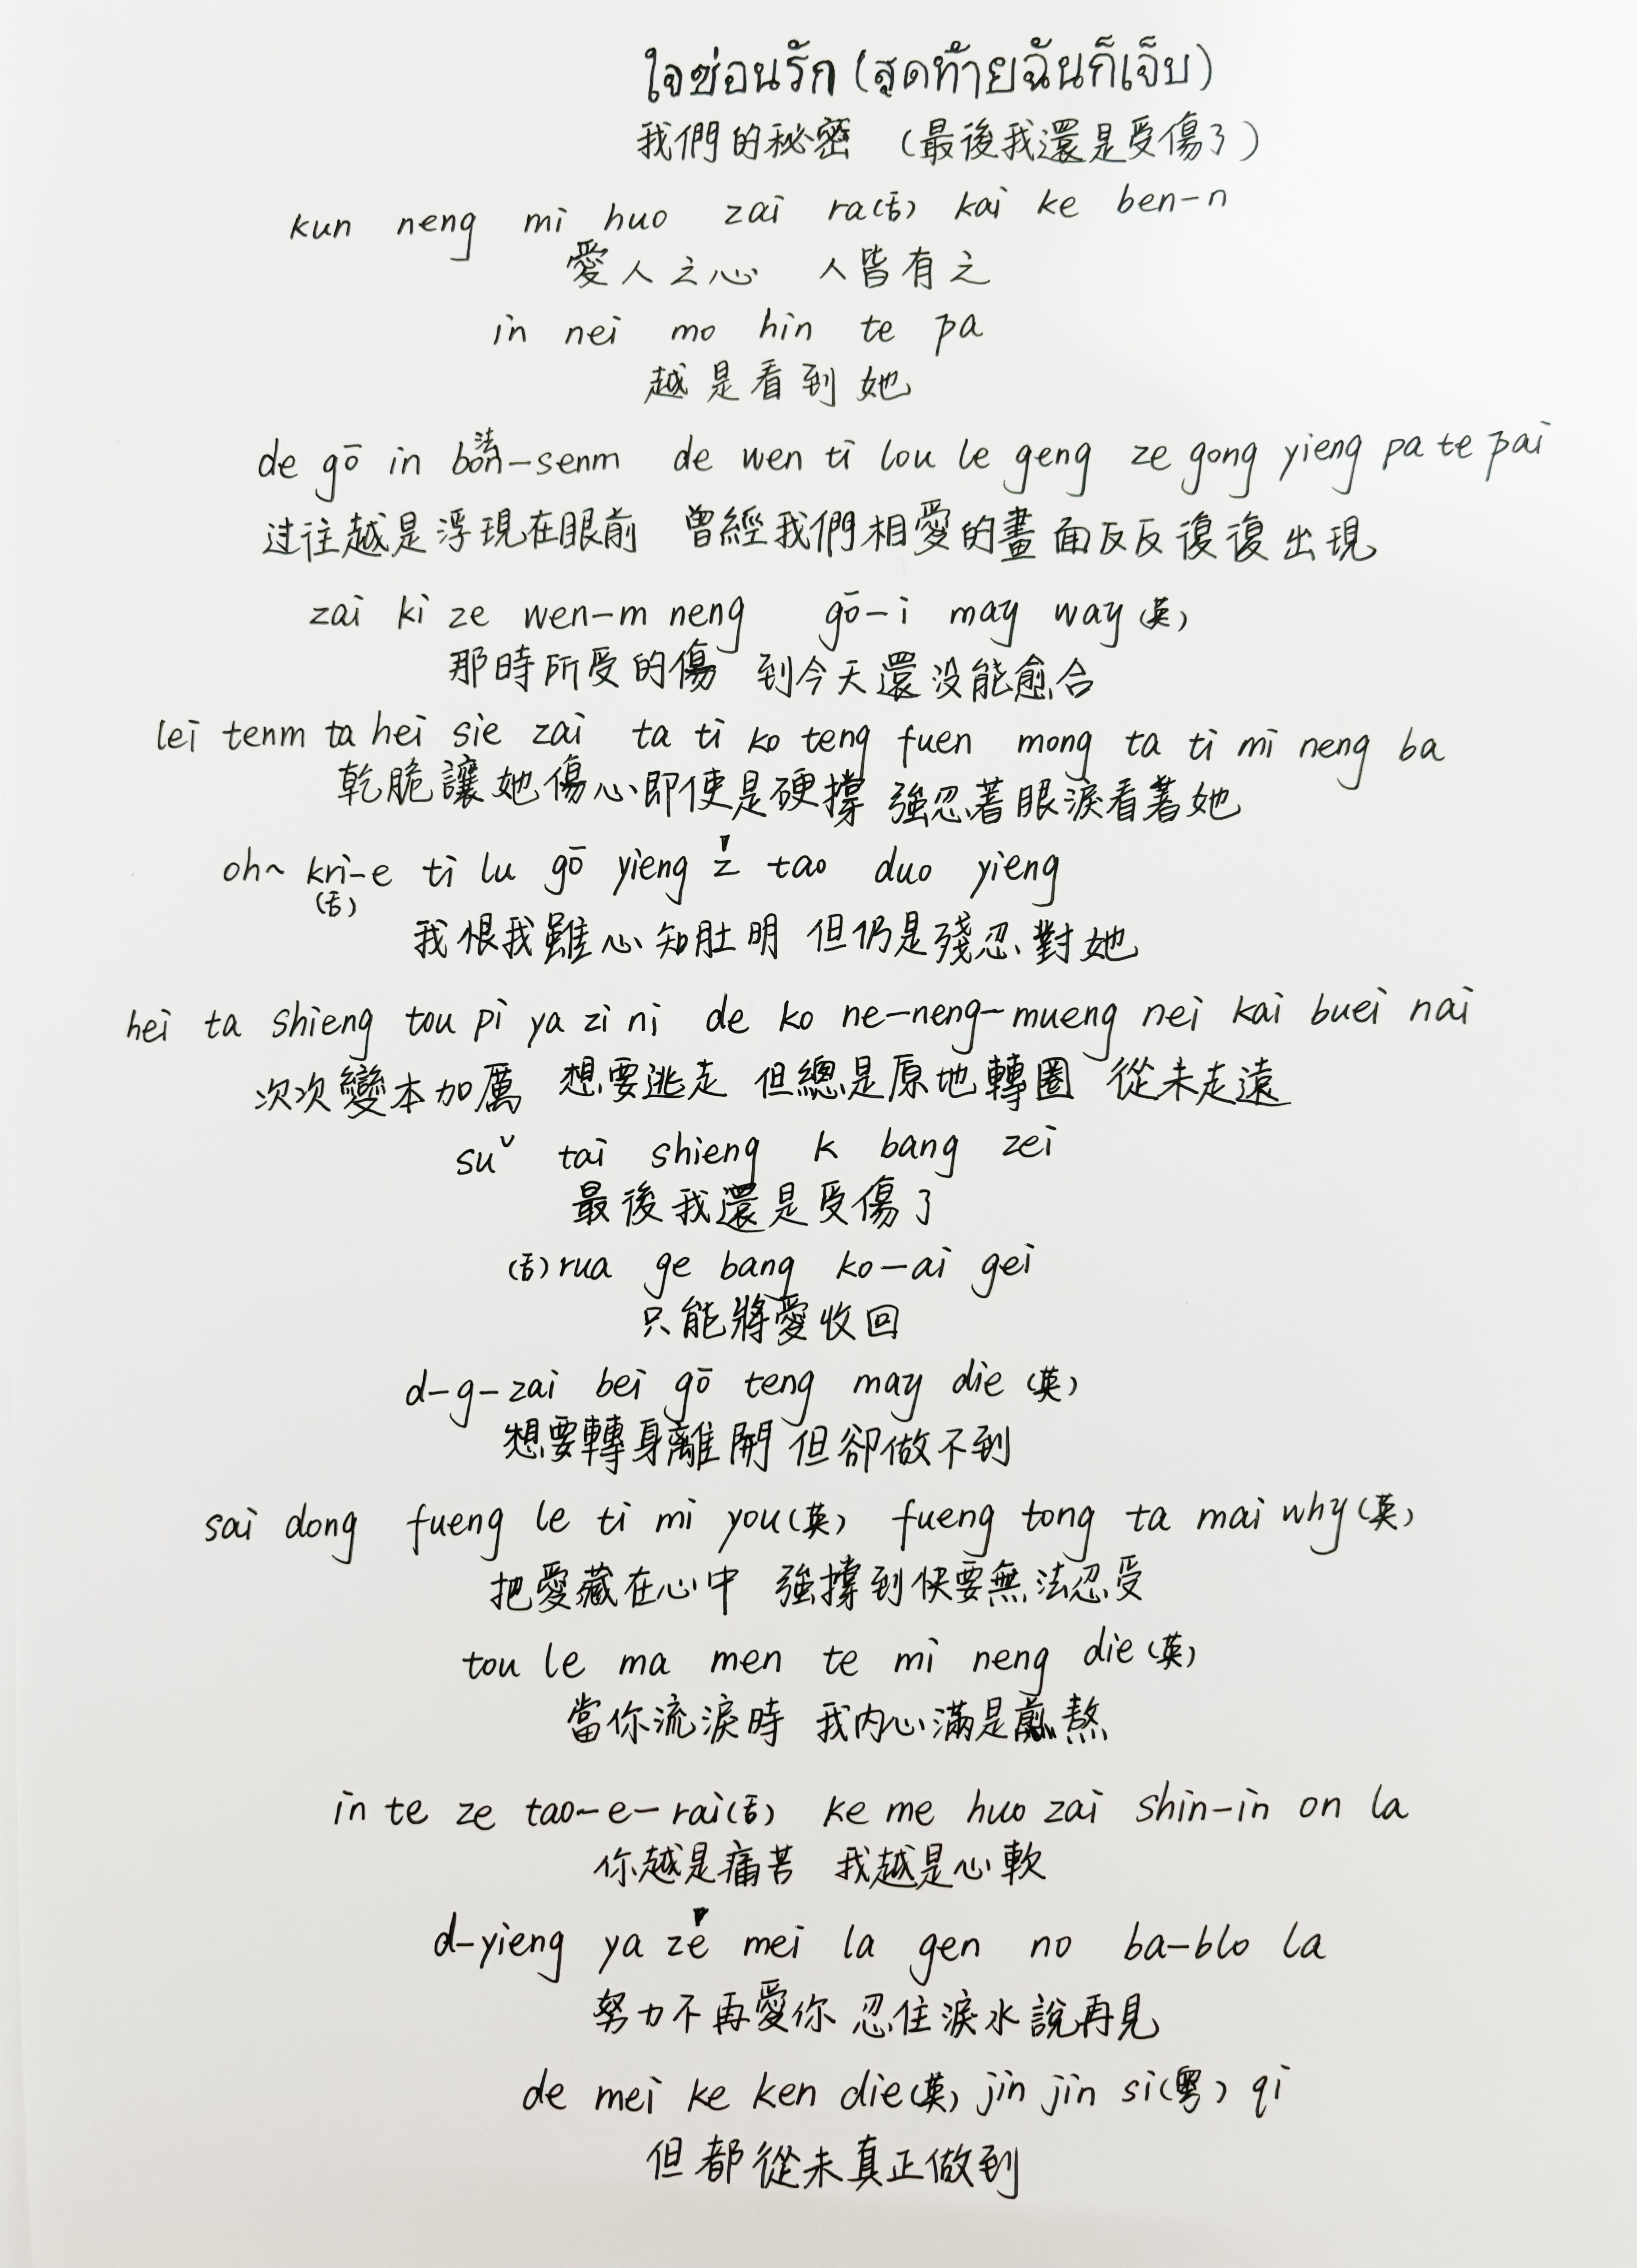 ใจซ่อนรัก (สุดท้ายฉันก็เจ็บ)
我們的秘密 （最後我還是受傷了）
kun neng mi huo zai ra(舌) kai ke ben-n
愛人之心 人皆有之
in nei mo hin te pa
越是看到她
de gō in bon-senm de wen ti lou le geng ze gong yieng pa te pai
过往越是浮現在眼前 曾經我們相愛的畫面反反復復出現
zai ki ze wen-m neng gō-i may way (英)
那時所受的傷 到今天還没能愈合
lei tenm ta hei sie zai ta ti ko teng fuen mong ta ti mi neng ba
乾脆讓她傷心即使是硬撐 強忍著眼淚看著她
oh~ kri-e ti lu gō yieng z tao duo yieng
(舌)
我恨我雖心知肚明 但仍是殘忍對她
hei ta shieng tou pi ya zi ni de ko ne-neng-mueng nei kai buei nai
次次變本加厲 想要逃走 但總是原地轉圈 從未走遠
suˇ tai shieng k bang zei
最後我還是受傷了
(舌) rua ge bang ko-ai gei
只能將愛收回
d-g-zai bei gō teng may die (英)
想要轉身離開 但卻做不到
sai dong fueng le ti mi you(英) fueng tong ta mai why(英)
把愛藏在心中 強撐到快要無法忍受
tou le ma men te mi neng die (英)
當你流淚時 我内心滿是煎熬
in te ze tao-e-rai(舌) ke me huo zai shin-in on la
你越是痛苦 我越是心軟
d-yieng ya ze mei la gen no ba-blo la
努力不再愛你 忍住淚水說再見
de mei ke ken die(英) jin jin si(粵) qi
但都從未真正做到